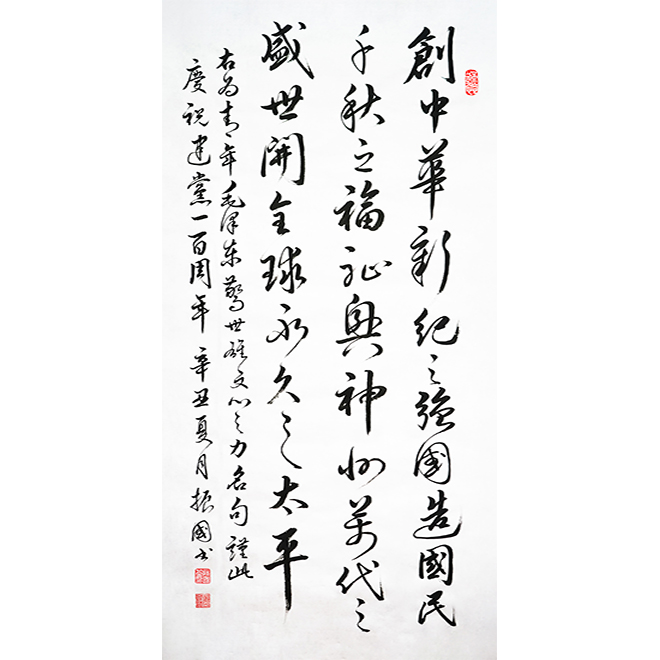 創中華新紀之強國造國民
千秋之福祉興神州萬代之
盛世開全球永久之太平
右為青年毛澤東警世雄文心之力名句謹此
慶祝建黨一百周年 辛丑夏月振國書